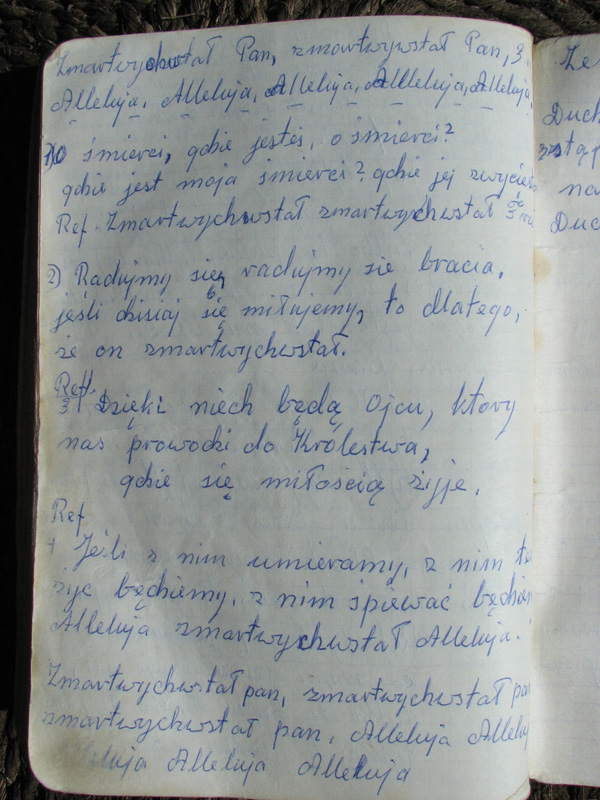 Zmartwychwstał Pan, zmartwywstał Pan, 3
Alleluja, Alleluja, Alleluja, Alleluja, Alleluja,
1) O śmierci, gdzie jesteś, o śmierci?
gdzie jest moja śmierci? gdzie jej
Ref. Zmartwychwstał zmartwychwstał
2) Radujmy się, radujmy sie bracia,
jeśli dzisiaj się miłujemy, to dlatego,
że on zmartwychwstał.
Ref.
3) Dzięki niech będą Ojcu, ktory
nas prowadzi do Królestwa,
gdzie się miłością żyje.
Ref
4 Jeśli z nim umieramy, z nim
żyć będziemy, z nim śpiewać
Alleluja zmartwychwstał Alleluja.
Zmartwychwstał pan, zmartwychwstał
zmartwychwstał pan, Alleluja
Alleluja Alleluja
Duch
na